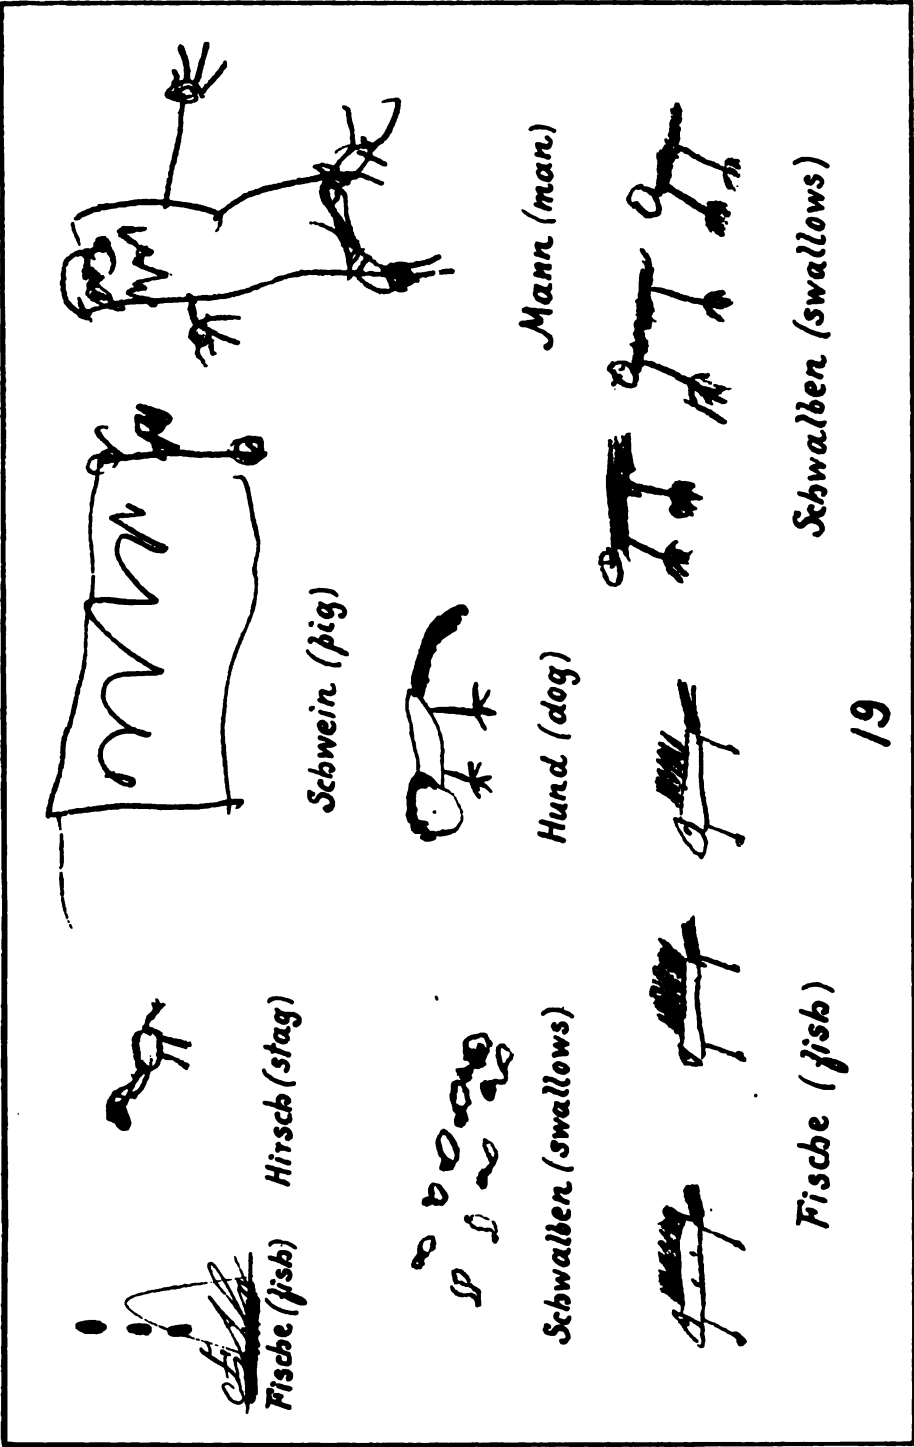 Fische (fish)
Hirsch (stag)
Schwein (pig)
Schwalben (swallows)
Hund (dog)
Mann (man)
Fische (fish)
Schwalben (swallows)
19